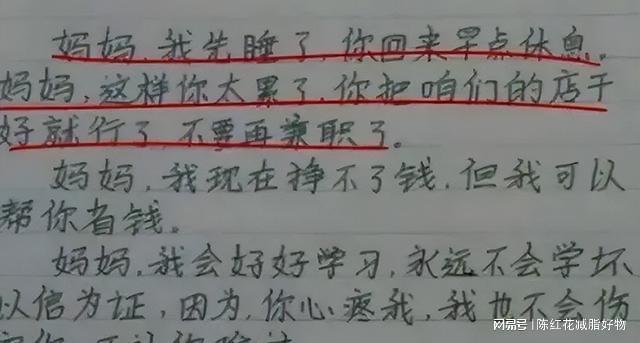 妈妈,我先睡了,你回来早点休息。
妈妈,这样你太累了,你把咱们的店干
好就行了,不要再兼职了。
妈妈,我现在挣不了钱,但我可以
帮你省钱。
妈妈,我会好好学习,永远不会学坏
以信为证,因为,你心疼我,我也不会伤
网易号 | 陈红花减脂好物